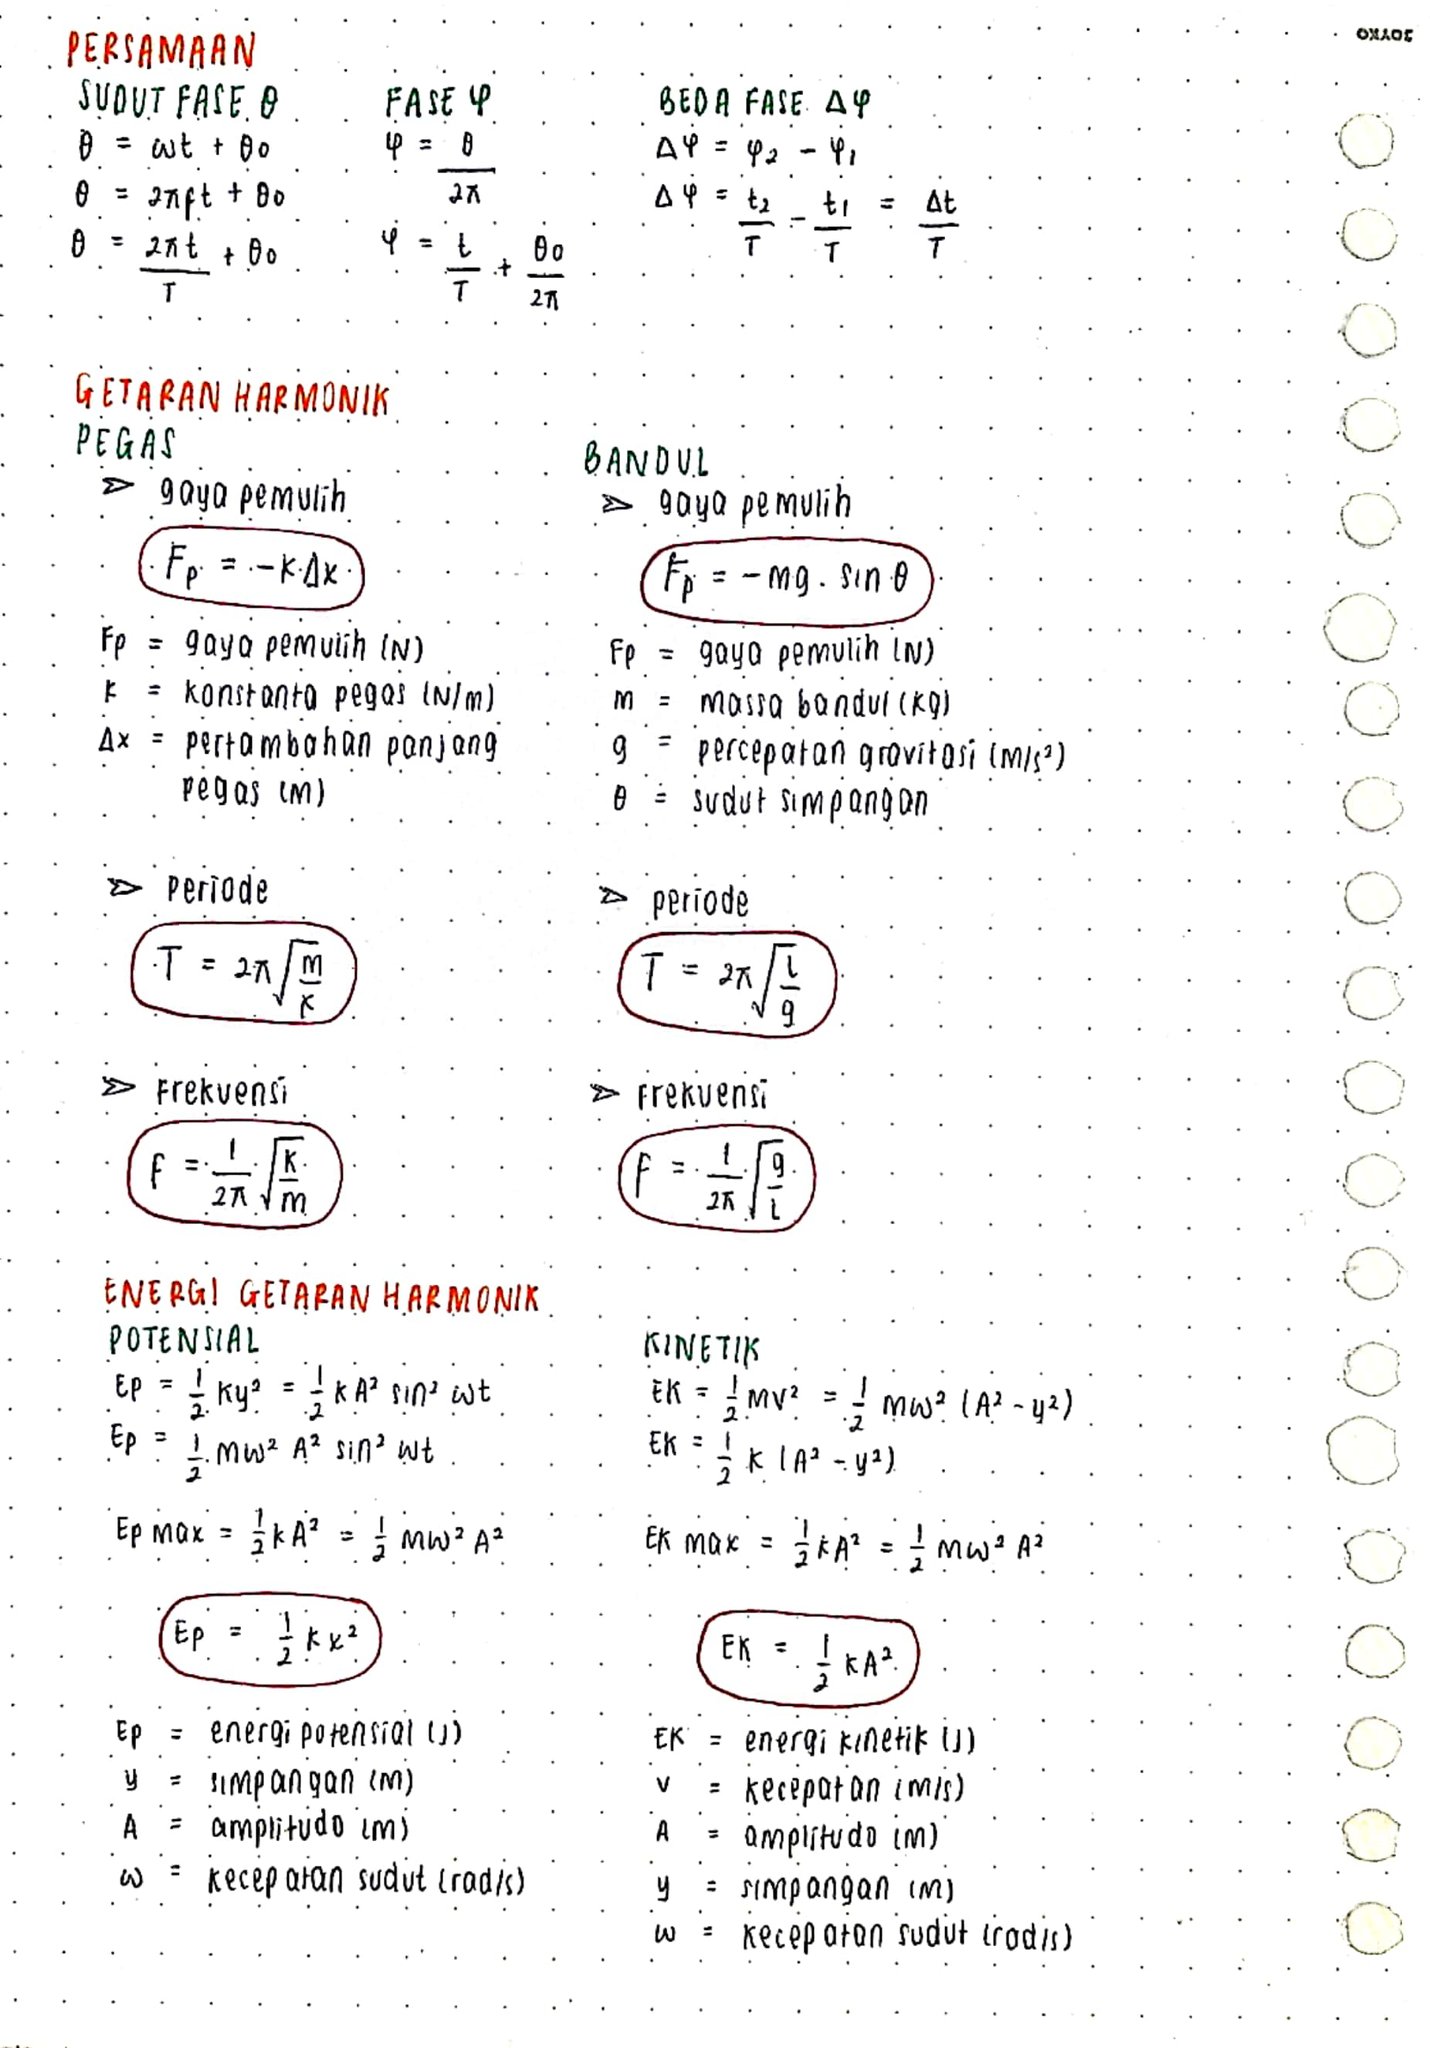 JOYKO
PERSAMAAN
SUDUT FASE θ
θ = ωt + θ0
θ = 2πft + θ0
θ = 2πt/T + θ0
FASE φ
φ = θ/2π
φ = t/T + θ0/2π
BEDA FASE Δφ
Δφ = φ2 - φ1
Δφ = t2/T - t1/T = Δt/T
GETARAN HARMONIK
PEGAS
➢ gaya pemulih
Fp = -k.Δx
Fp = gaya pemulih (N)
k = konstanta pegas (N/m)
Δx = pertambahan panjang
pegas (m)
➢ Periode
T = 2π√(m/k)
➢ Frekuensi
F = 1/2π √(k/m)
BANDUL
➢ gaya pemulih
Fp = -mg. sin θ
Fp = gaya pemulih (N)
m = massa bandul (kg)
g = percepatan gravitasi (m/s²)
θ = sudut simpangan
➢ periode
T = 2π√(l/g)
➢ Frekuensi
F = 1/2π √(g/l)
ENERGI GETARAN HARMONIK
POTENSIAL
Ep = 1/2 ky² = 1/2 kA² sin² ωt
Ep = 1/2 mω² A² sin² ωt
Ep max = 1/2 kA² = 1/2 mω² A²
Ep = 1/2 kx²
Ep = energi potensial (J)
y = simpangan (m)
A = amplitudo (m)
ω = kecepatan sudut (rad/s)
KINETIK
EK = 1/2 mv² = 1/2 mω² (A² - y²)
EK = 1/2 k (A² - y²)
EK max = 1/2 kA² = 1/2 mω² A²
EK = 1/2 kA²
EK = energi kinetik (J)
v = kecepatan (m/s)
A = amplitudo (m)
y = simpangan (m)
ω = kecepatan sudut (rad/s)